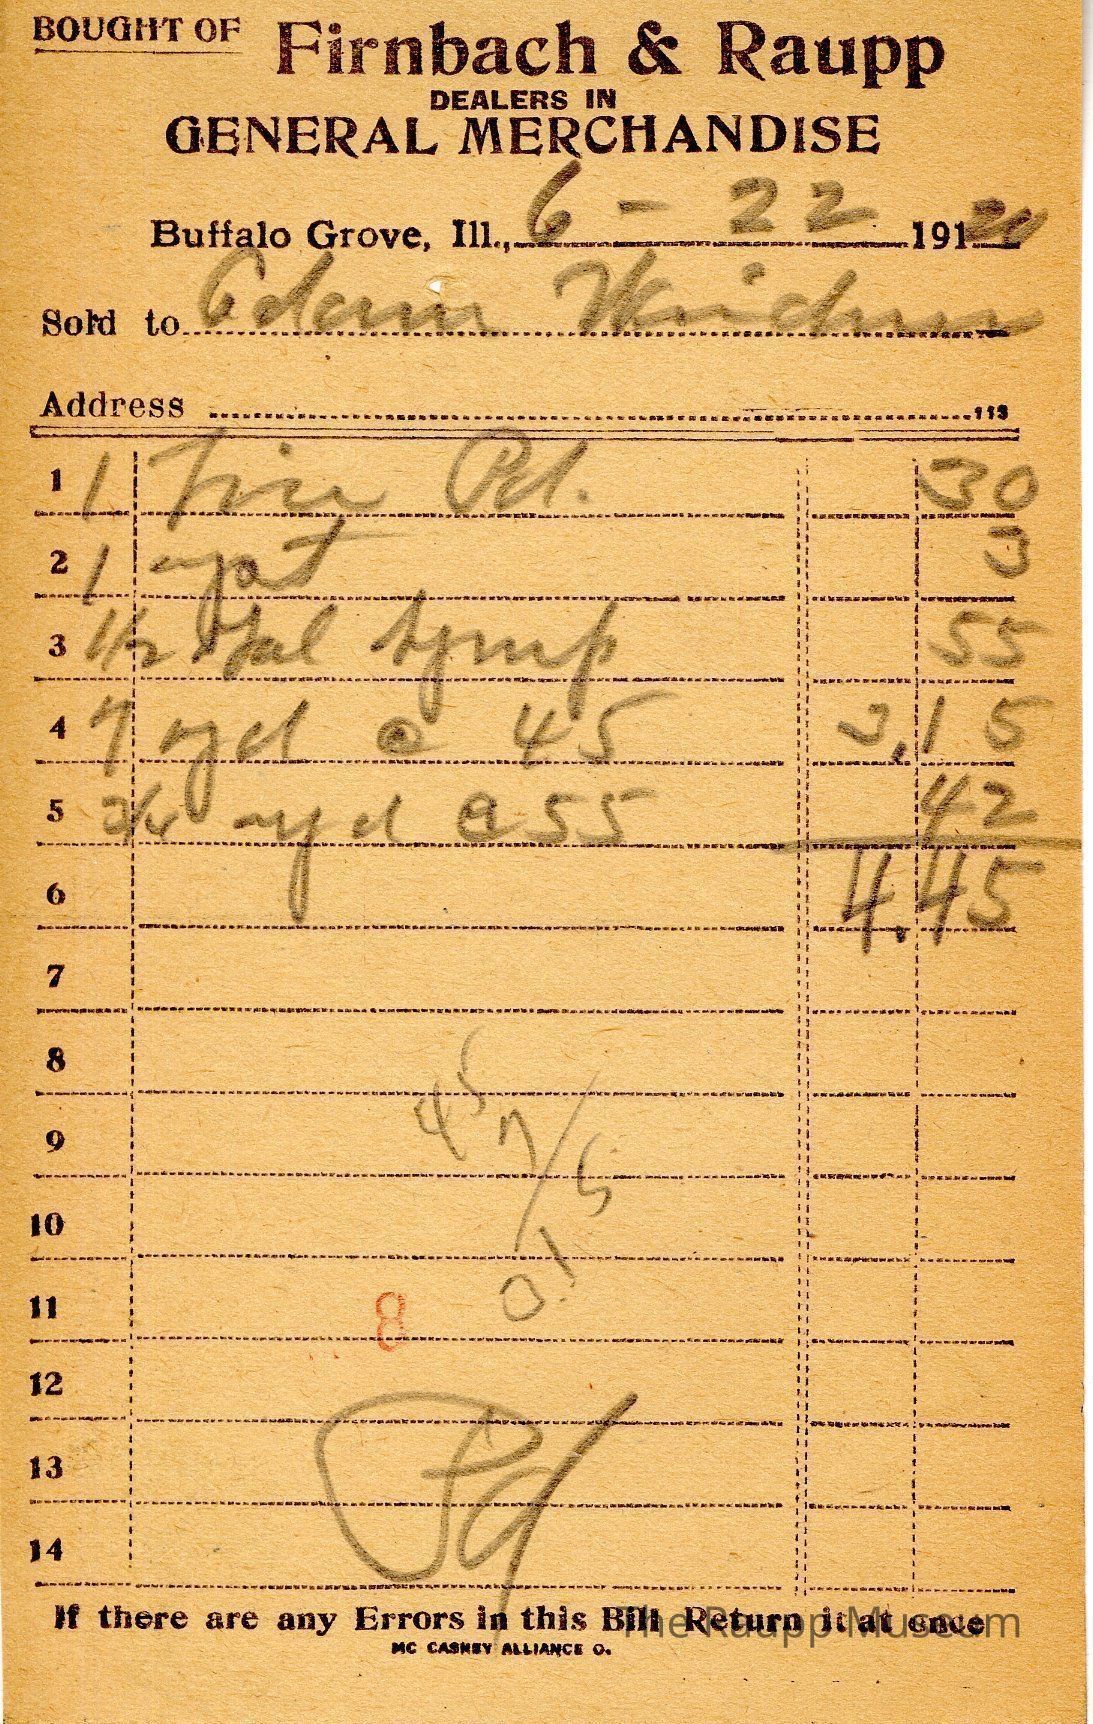 BOUGHT OF Firnbach & Raupp
DEALERS IN
GENERAL MERCHANDISE
Buffalo Grove, Ill., 6 - 22 191 20
Sold to Adam
Address 113
1 1 Pd. 30
2 1 3
3 1/2 Gal Syrup 55
4 7 yd @ 45 3.15
5 3/4 yd @ 55 42
6 4.45
7
8
45
7
9
5
10
1
0
11
8
12
13
Pd
14
If there are any Errors in this Bill Return it at once
The Raupp Museum
MC CASKEY ALLIANCE O.